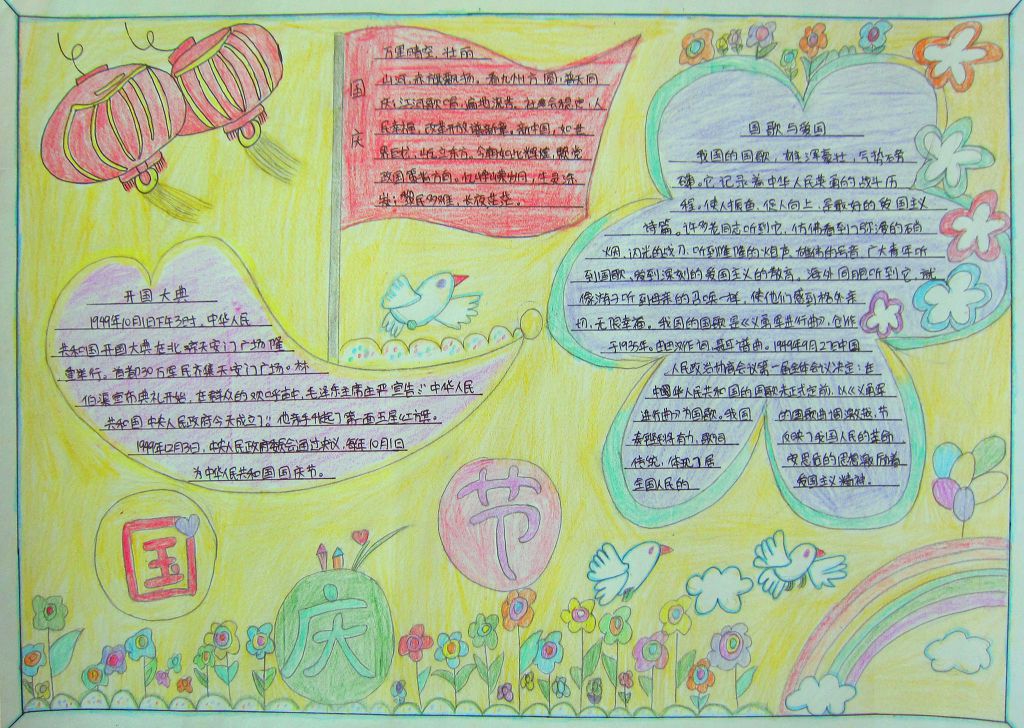 国庆
万里晴空,壮丽
山河,赤旗飘扬。看九州方圆,普天同
庆;江河歌唱,遍地流芳。社会稳定,人
民幸福,改革开放谱新章。新中国,如世
界巨龙,屹立东方。今朝如此辉煌,赖党
政国策指方向。忆峥嵘岁月,
黎民多难,长夜茫茫。
开国大典
1949年10月1日下午3时,中华人民
共和国开国大典在北京天安门广场隆
重举行。首都30万军民齐集天安门广场。林
伯渠宣布典礼开始,在群众的欢呼声中,毛泽东主席庄严宣告:“中华人民
共和国中央人民政府今天成立了”。他亲手升起了第一面五星红旗。
1949年12月3日,中央人民政府委员会通过决议,每年10月1日
为中华人民共和国国庆节。
国歌与爱国
我国的国歌,雄浑豪壮,气势磅
礴。它记录着中华人民英勇的战斗历
程。使人振奋,促人向上,是最好的爱国主义
诗篇。许多老同志听到它,仿佛看到了弥漫的硝
烟,闪光的战刀,听到隆隆的炮声,雄伟的号音,广大青年听
到国歌,受到深刻的爱国主义的教育,海外同胞听到它,就
像游子听到母亲的召唤一样,使他们感到格外亲
切、无限幸福。我国的国歌是《义勇军进行曲》,创作
于1935年。由田汉作词,聂耳谱曲。1949年9月27日中国
人民政治协商会议第一届全体会议决定:在
中国华人民共和国的国歌未正式定前,以《义勇军
进行曲》为国歌。我国的国歌曲调激越,节
奏铿锵有力,歌词反映了我国人民的革命
传统,体现了居安思危的思想,激励着
全国人民的爱国主义精神。
国庆节